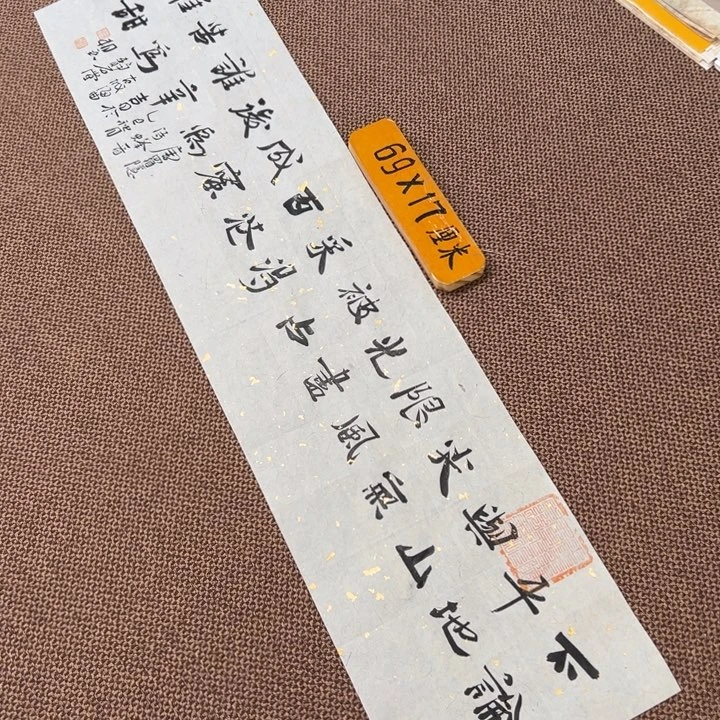 不論
平地
與山
尖無
限風
光盡
被占
采得
百花
成蜜
後為
誰辛
苦為
誰甜
唐羅隱
69X17厘米